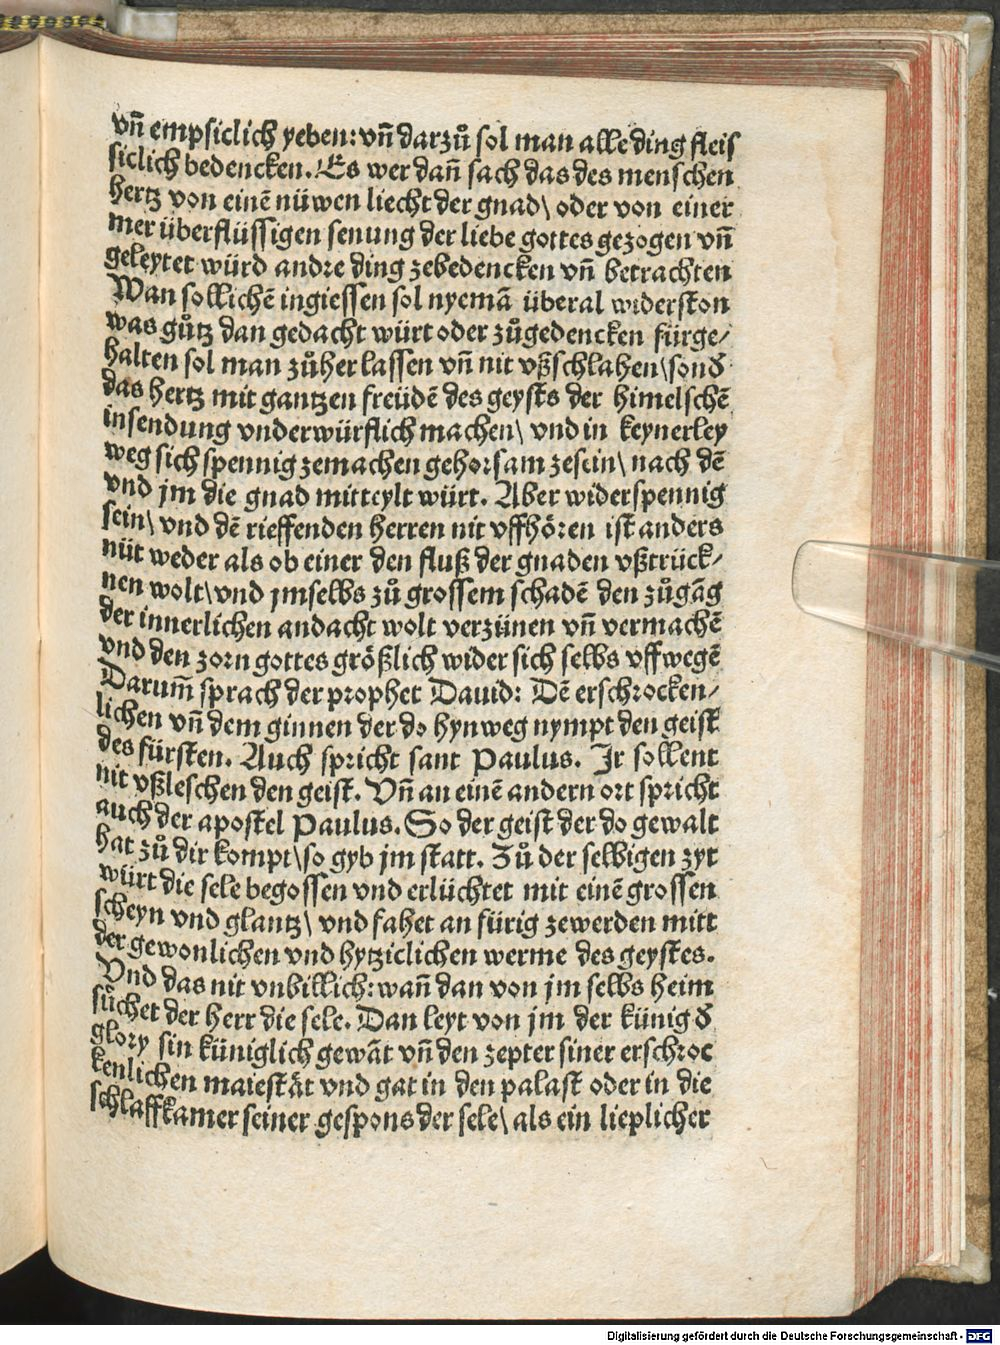 vñ empsiclich yeben: vñ darzuͦ sol man alle ding fleis
siclich bedencken. Es wer dañ sach das des menschen
hertz von einē nüwen liecht der gnad\ oder von einer
mer überflüssigen senung der liebe gottes gezogen vñ
geleytet würd andre ding zebedencken vñ betrachten
Wan sollichē ingiessen sol nyemā überal widerston
was guͦtz dan gedacht würt oder zuͦgedencken fürge/
halten sol man zuͦher lassen vñ nit vßschlahen\ sond̕
das hertz mit gantzen freüdē des geysts der himelschē
insendung vnderwürflich machen\ vnd in keynerley
weg sich spennig zemachen gehorsam zesein\ nach dē
vnd jm die gnad mitteylt würt. Aber widerspennig
sein\ vnd dē rieffenden herren nit vffhören ist anders
nüt weder als ob einer den fluß der gnaden vßtrück/
nen wolt\ vnd jmselbs zuͦ grossem schadē den zuͦgāg
der innerlichen andacht wolt verzünen vñ vermachē
vnd den zorn gottes größlich wider sich selbs vffwegē
Darum̄ sprach der prophet Dauid: Dē erschrocken/
lichen vñ dem ginnen der do hynweg nympt den geist
des fürsten. Auch spricht sant Paulus. Ir sollent
nit vßleschen den geist. Vñ an einē andern ort spricht
auch der apostel Paulus. So der geist der do gewalt
hat zuͦ dir kompt\ so gyb jm statt. Zuͦ der selbigen zyt
würt die sele begossen vnd erlüchtet mit einē grossen
scheyn vnd glantz\ vnd fahet an fürig zewerden mitt
der gewonlichen vnd hytziclichen werme des geystes.
Vnd das nit vnbillich: wañ dan von jm selbs heim
suͦchet der herr die sele. Dan leyt von jm der künig d̕
glory sin küniglich gewāt vñ den zepter siner erschroc
kenlichen maiestät vnd gat in den palast oder in die
schlaffkamer seiner gespons der sele\ als ein lieplicher
Digitalisierung gefördert durch die Deutsche Forschungsgemeinschaft - DFG